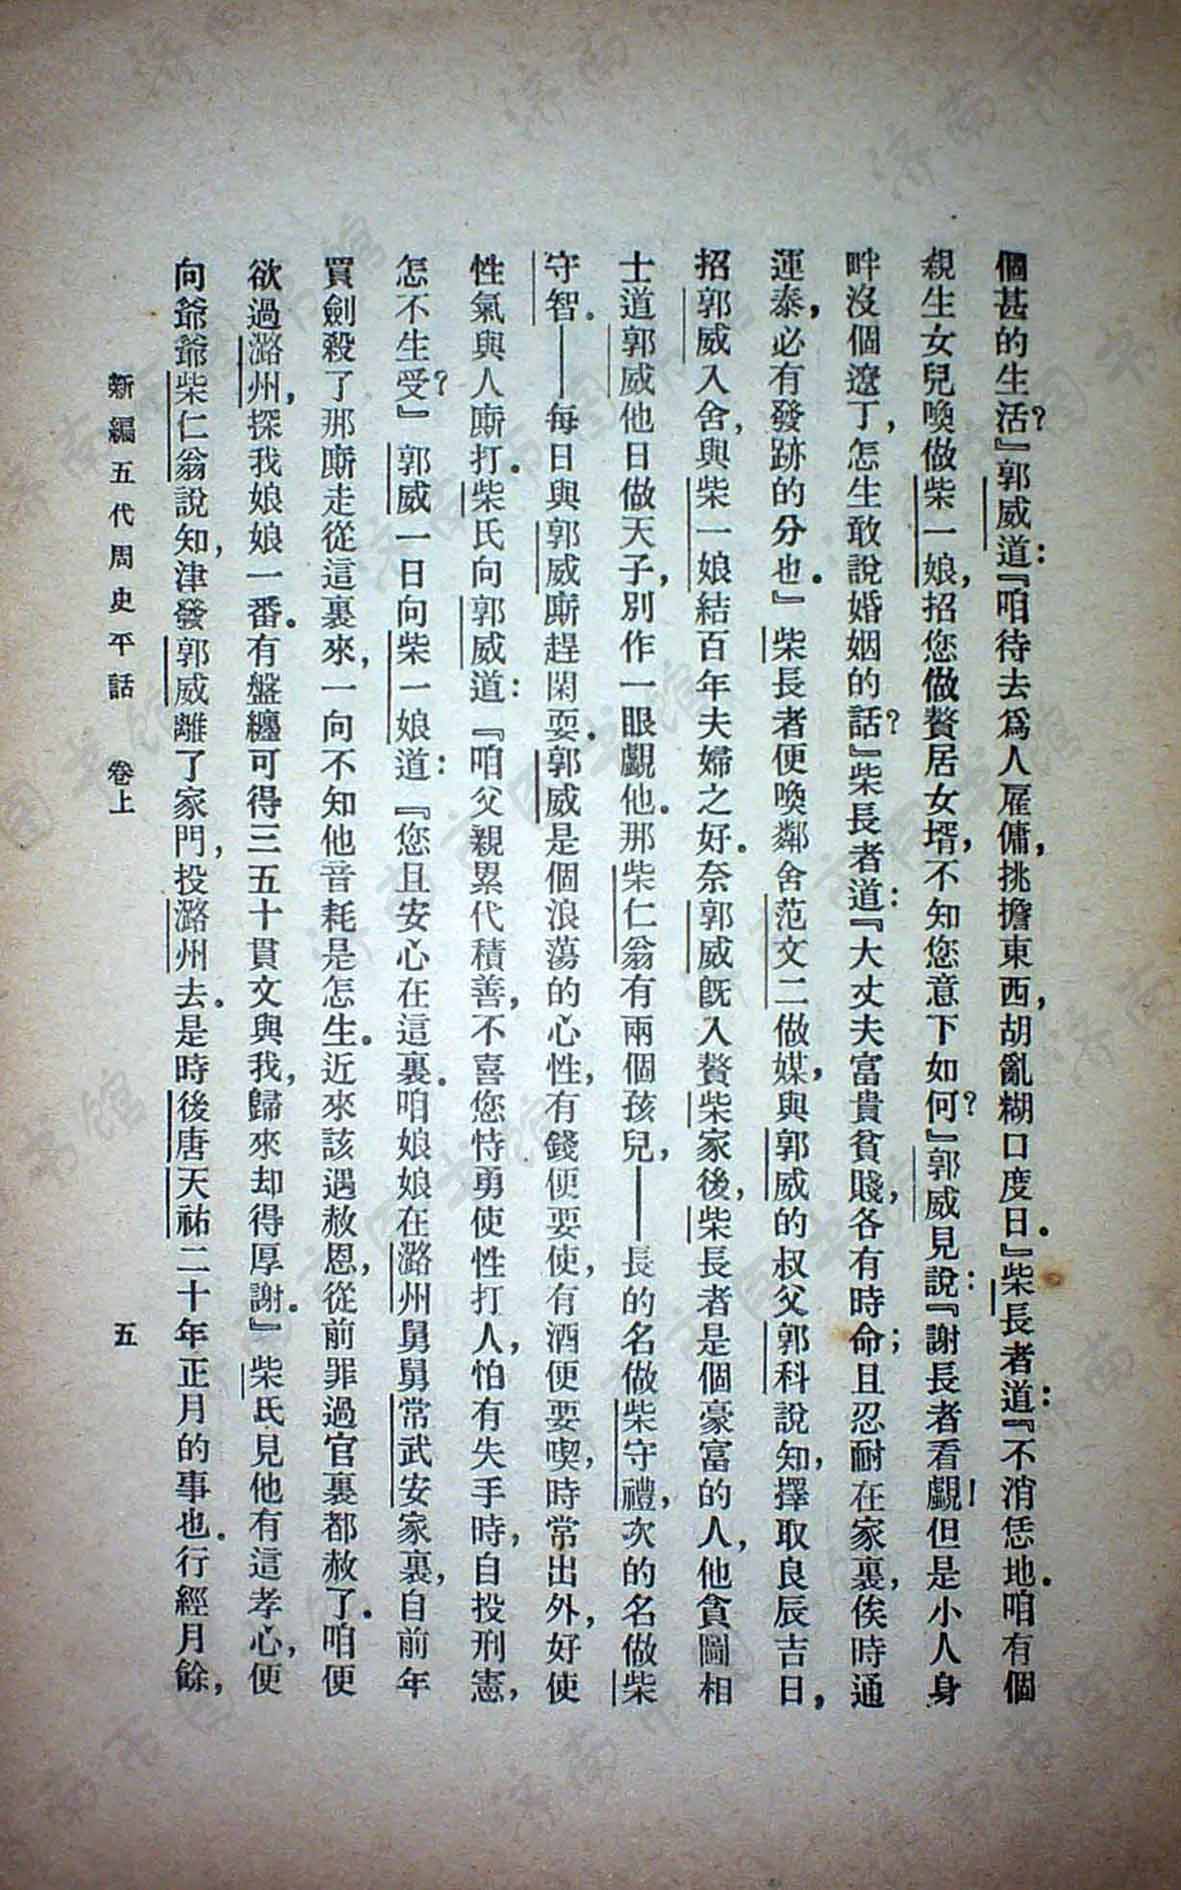 個甚的生活？』郭威道：『咱待去爲人雇傭，挑擔東西，胡亂糊口度日。』柴長者道：『不消恁地。咱有個
親生女兒喚做柴一娘，招您做贅居女壻，不知您意下如何？』郭威見說：『謝長者看覷！但是小人身
畔沒個遼丁，怎生敢說婚姻的話？』柴長者道：『大丈夫富貴貧賤，各有時命；且忍耐在家裏，俟時通
運泰，必有發跡的分也。』柴長者便喚鄰舍范文二做媒，與郭威的叔父郭科說知，擇取良辰吉日，
招郭威入舍，與柴一娘結百年夫婦之好。奈郭威旣入贅柴家後，柴長者是個豪富的人，他貪圖相
士道郭威他日做天子，別作一眼覷他。那柴仁翁有兩個孩兒，——長的名做柴守禮，次的名做柴
守智。——每日與郭威廝趕閑耍。郭威是個浪蕩的心性，有錢便要使，有酒便要喫，時常出外，好使
性氣與人廝打。柴氏向郭威道：『咱父親累代積善，不喜您恃勇使性打人，怕有失手時，自投刑憲，
怎不生受？』郭威一日向柴一娘道：『您且安心在這裏。咱娘娘在潞州舅舅常武安家裏，自前年
買劍殺了那廝走從這裏來，一向不知他音耗是怎生。近來該遇赦恩，從前罪過官裏都赦了。咱便
欲過潞州，探我娘娘一番。有盤纏可得三五十貫文與我，歸來却得厚謝。』柴氏見他有這孝心，便
向爺爺柴仁翁說知，津發郭威離了家門，投潞州去。是時後唐天祐二十年正月的事也。行經月餘，
新編五代周史平話　卷上　五